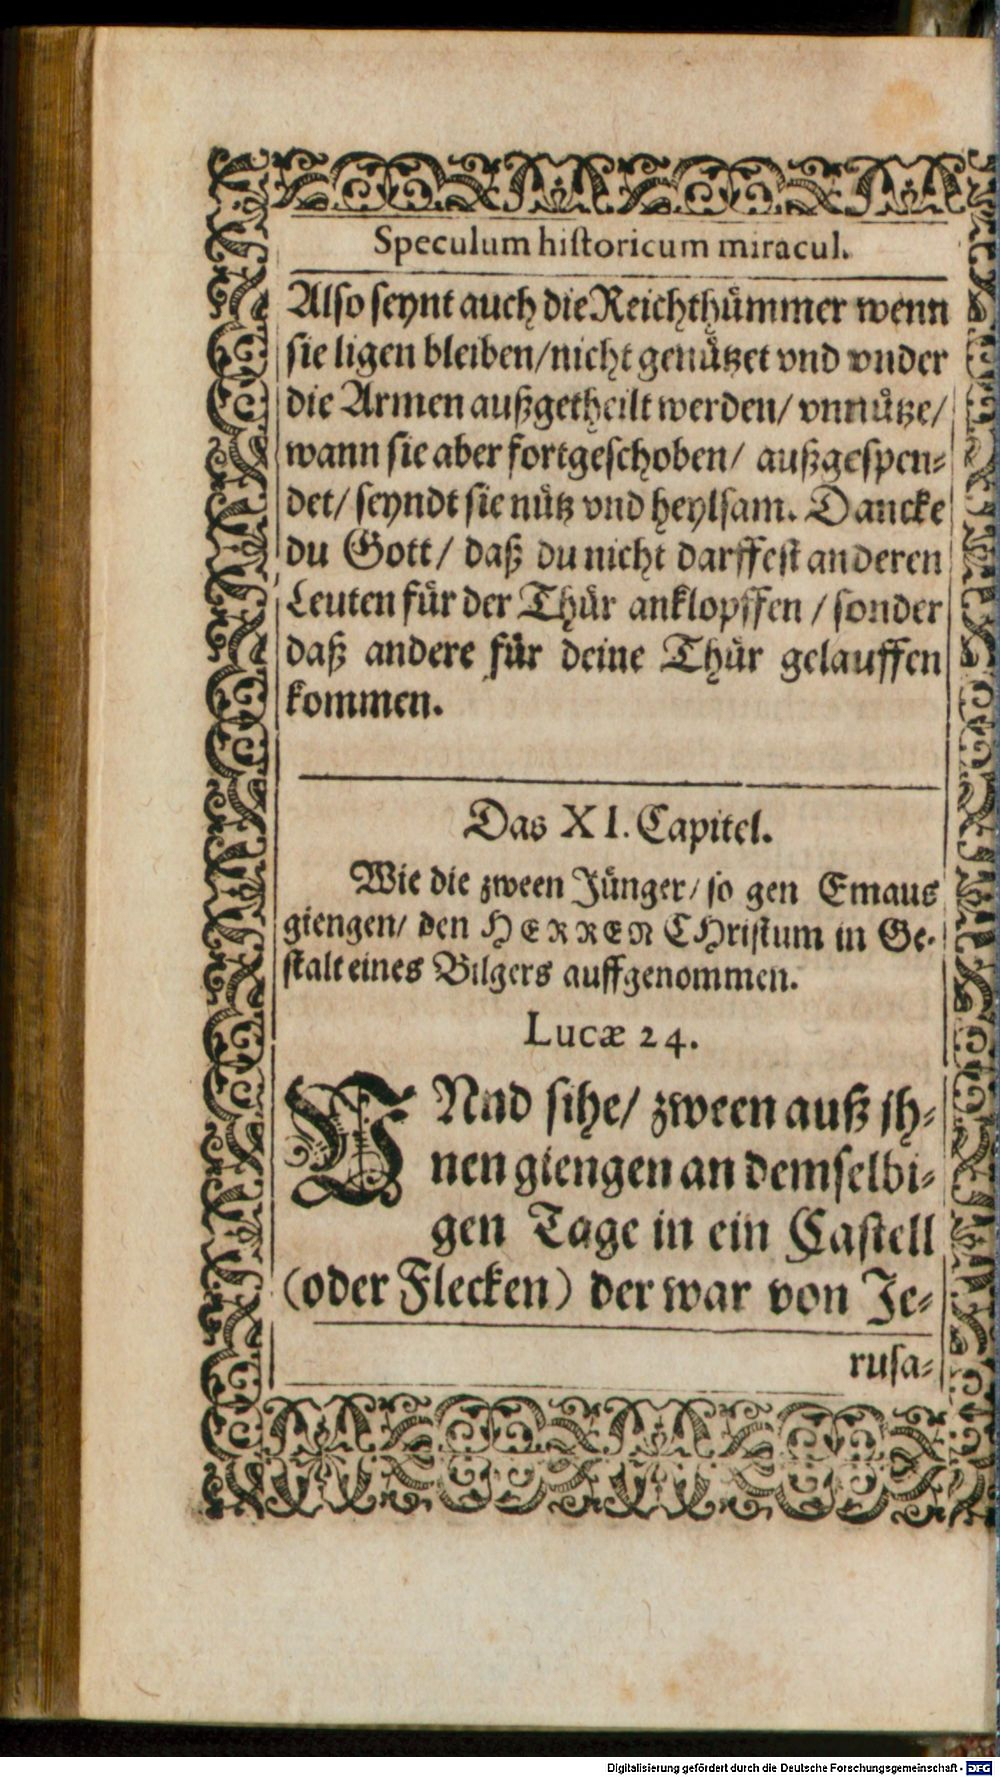 Speculum historicum miracul.
Also seynt auch die Reichthümmer wenn
sie ligen bleiben/nicht genützet vnd vnder
die Armen außgetheilt werden/ vnnütze/
wann sie aber fortgeschoben/ außgespen-
det/ seyndt sie nütz vnd heylsam. Dancke
du Gott/ daß du nicht darffest anderen
Leuten für der Thür anklopffen / sonder
daß andere für deine Thür gelauffen
kommen.
Das XI. Capitel.
Wie die zween Jünger/ so gen Emaus
giengen/ den HERREN CHristum in Ge-
stalt eines Bilgers auffgenommen.
Lucæ 24.
VNnd sihe/ zween auß jh-
nen giengen an demselbi-
gen Tage in ein Castell
(oder Flecken) der war von Je-
rusa-
Digitalisierung gefördert durch die Deutsche Forschungsgemeinschaft - DFG